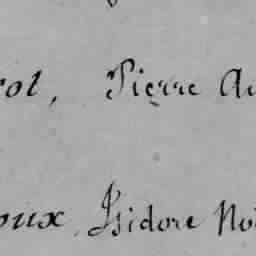 rot, Pierre Au
oux, Isidore Noë